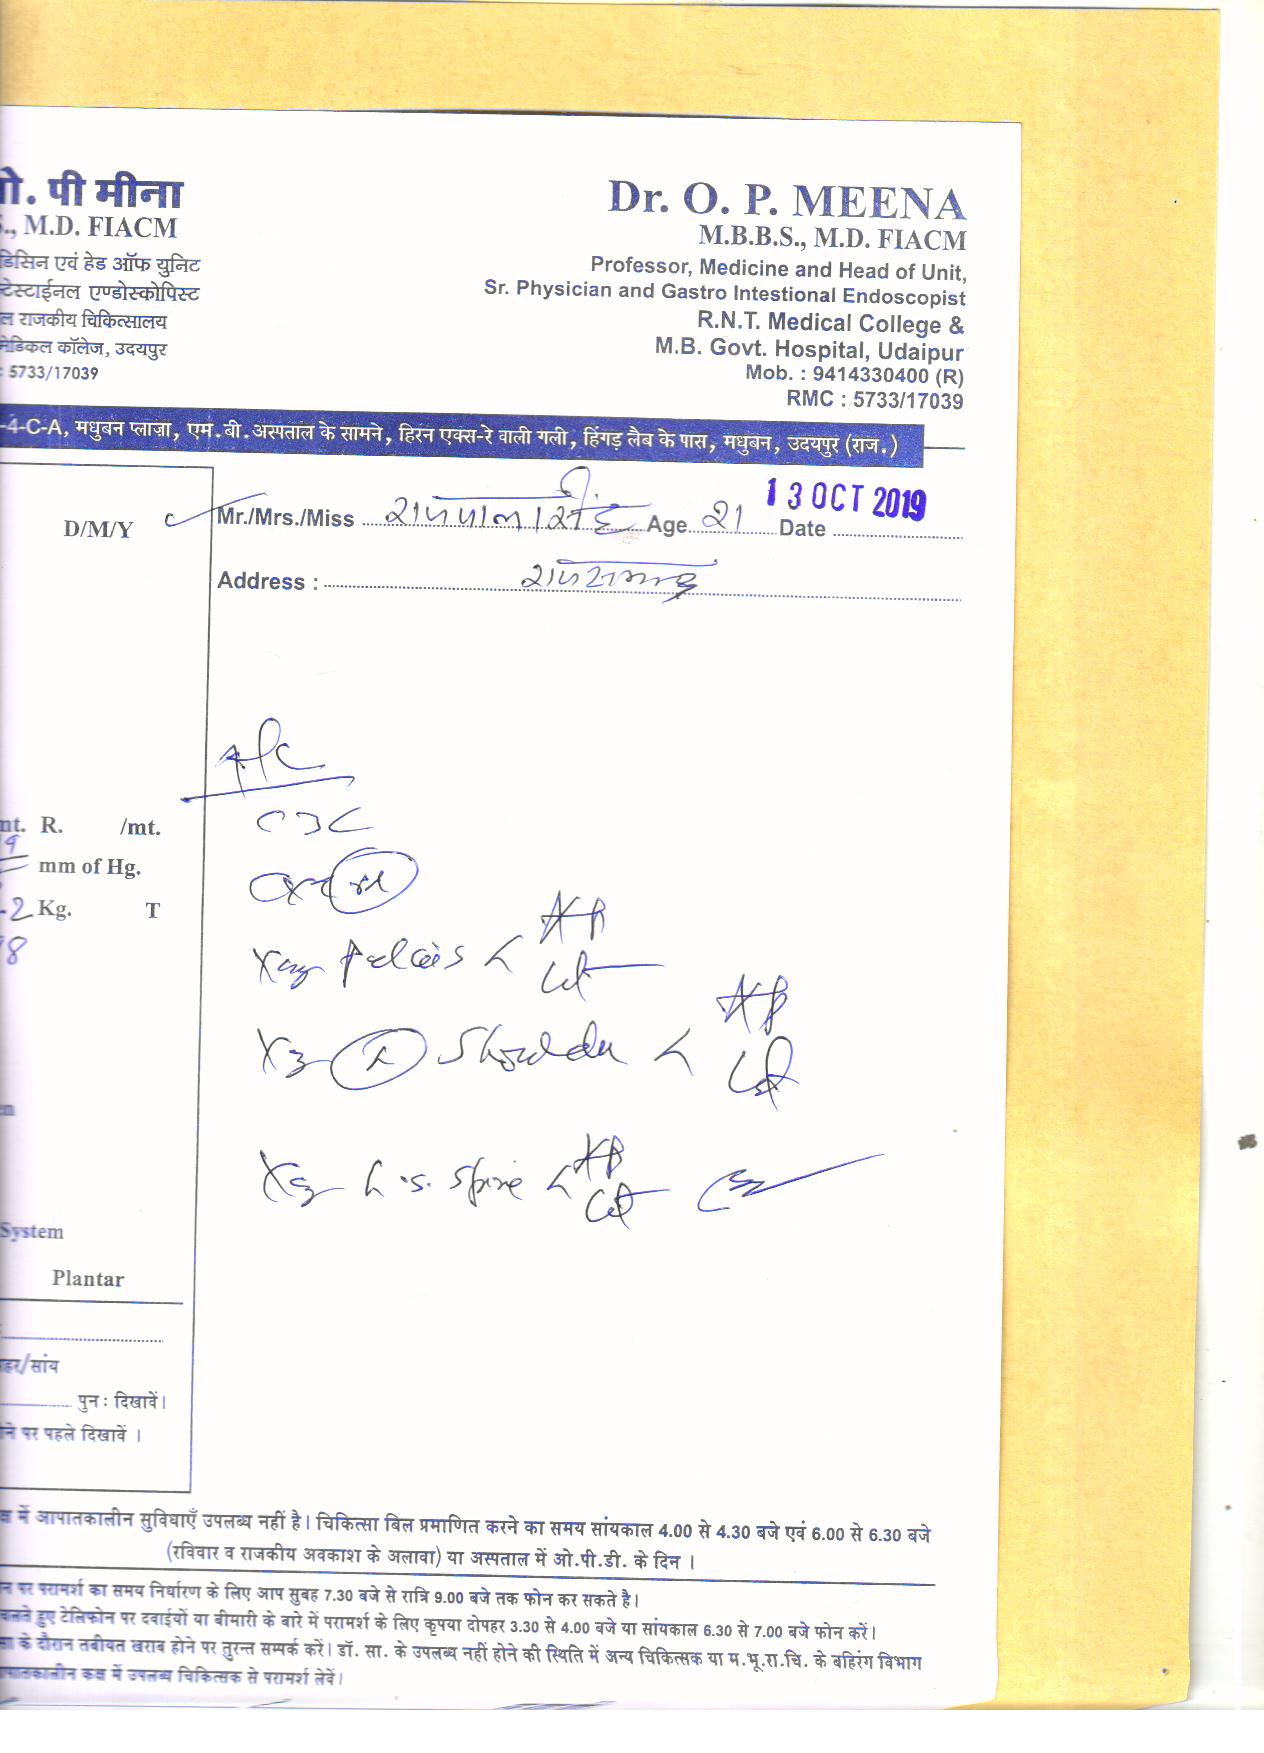 ो. पी मीना
., M.D. FIACM
डिसिन एवं हेड ऑफ युनिट
टेस्टाईनल एण्डोस्कोपिस्ट
ल राजकीय चिकित्सालय
मेडिकल कॉलेज, उदयपुर
: 5733/17039
Dr. O. P. MEENA
M.B.B.S., M.D. FIACM
Professor, Medicine and Head of Unit,
Sr. Physician and Gastro Intestional Endoscopist
R.N.T. Medical College &
M.B. Govt. Hospital, Udaipur
Mob. : 9414330400 (R)
RMC : 5733/17039
-4-C-A, मधुबन प्लाज़ा, एम.बी.अस्पताल के सामने, हिरन एक्स-रे वाली गली, हिंगड़ लैब के पास, मधुबन, उदयपुर (राज.)
D/M/Y
Mr./Mrs./Miss राजपाल सिंह Age 21 Date 13 OCT 2019
Address :
mt. R. /mt.
mm of Hg.
2 Kg. T
CBC
Xray Pelvis < AP
Lat
X (L) Shoulder < AP
Lat
X L.S. Spine < AP
Lat
System
Plantar
हर/सांय
पुन: दिखावें।
ने पर पहले दिखावें ।
क्ष में आपातकालीन सुविधाएँ उपलब्ध नहीं है। चिकित्सा बिल प्रमाणित करने का समय सांयकाल 4.00 से 4.30 बजे एवं 6.00 से 6.30 बजे
(रविवार व राजकीय अवकाश के अलावा) या अस्पताल में ओ.पी.डी. के दिन ।
न पर परामर्श का समय निर्धारण के लिए आप सुबह 7.30 बजे से रात्रि 9.00 बजे तक फोन कर सकते है।
चलते हुए टेलिफोन पर दवाईयों या बीमारी के बारे में परामर्श के लिए कृपया दोपहर 3.30 से 4.00 बजे या सांयकाल 6.30 से 7.00 बजे फोन करें।
सा के दौरान तबीयत खराब होने पर तुरन्त सम्पर्क करें। डॉ. सा. के उपलब्ध नहीं होने की स्थिति में अन्य चिकित्सक या म.भू.रा.चि. के बहिरंग विभाग
ापातकालीन कक्ष में उपलब्ध चिकित्सक से परामर्श लेवें।